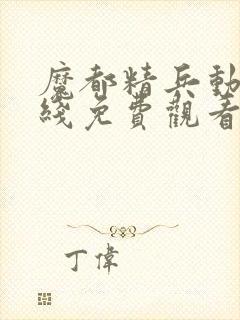 魔都精兵動
綫免費觀看
丁偉